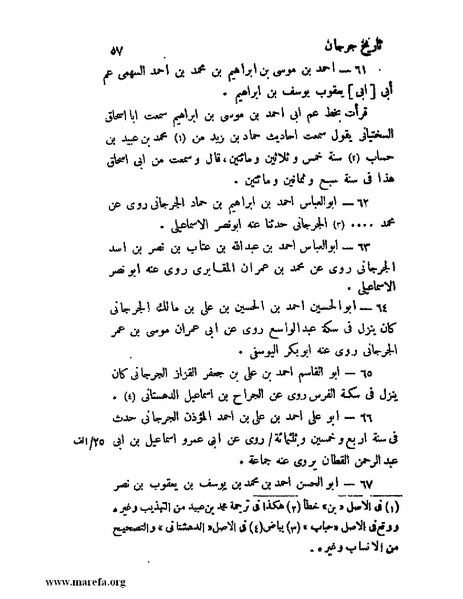 تاريخ جرجان ٥٧
٦١ — احمد بن موسى بن ابراهيم بن محمد بن احمد السهمى عم
أبى [ ابى ] يعقوب يوسف بن ابراهيم .
قرأت بخط عم ابى احمد بن موسى بن ابراهيم سمعت ابا اسحاق
السختيانى يقول سمعت احاديث حماد بن زيد من (١) محمد بن عبيد بن
حساب (٢) سنة خمس وثلاثين ومائتين، قال وسمعت من ابى اسحاق
هذا فى سنة سبع وثمانين ومائتين .
٦٢ — ابو العباس احمد بن ابراهيم بن حماد الجرجانى روى عن
محمد .... (٣) الجرجانى حدثنا عنه ابو نصر الاسماعيلى .
٦٣ — ابو العباس احمد بن عبدالله بن عتاب بن نصر بن اسد
الجرجانى روى عن محمد بن عمران المقابرى روى عنه ابو نصر
الاسماعيلى .
٦٤ — ابو الحسين احمد بن الحسين بن على بن مالك الجرجانى
كان ينزل فى سكة عبد الواسع روى عن ابى عمران موسى بن عمر
الجرجانى روى عنه ابو بكر البوسنى .
٦٥ — ابو القاسم احمد بن على بن جعفر القزاز الجرجانى كان
ينزل فى سكة الفرس روى عن الجراح بن اسماعيل الدهستانى (٤) .
٦٦ — ابو على احمد بن على بن احمد المؤذن الجرجانى حدث
فى سنة اربع وخمسين وثلثمائة / روى عن ابى عمرو اسماعيل بن ابى ٢٥/ الف
عبد الرحمن القطان يروى عنه جماعة .
٦٧ — ابو الحسن احمد بن محمد بن يوسف بن يعقوب بن نصر
(١) فى الاصل «بن» خطأ (٢) هكذا فى ترجمة محمد بن عبيد من التهذيب وغيره
ووقع فى الاصل «حباب» (٣) بياض (٤) فى الاصل «الدهشتانى» والتصحيح
من الانساب وغيره .
www.marefa.org